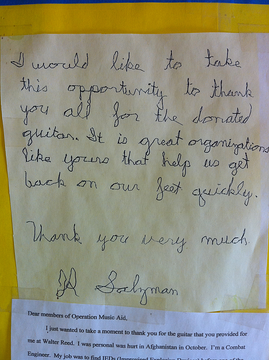 I would like to take
this opportunity to thank
you all for the donated
guitar. It is great organizations
like yours that help us get
back on our feet quickly.
Thank you very much.
Dear members of Operation Music Aid,
I just wanted to take a moment to thank you for the guitar that you provided for
me at Walter Reed. I was personal was hurt in Afghanistan in October. I'm a Combat
Engineer. My job was to find IEDs